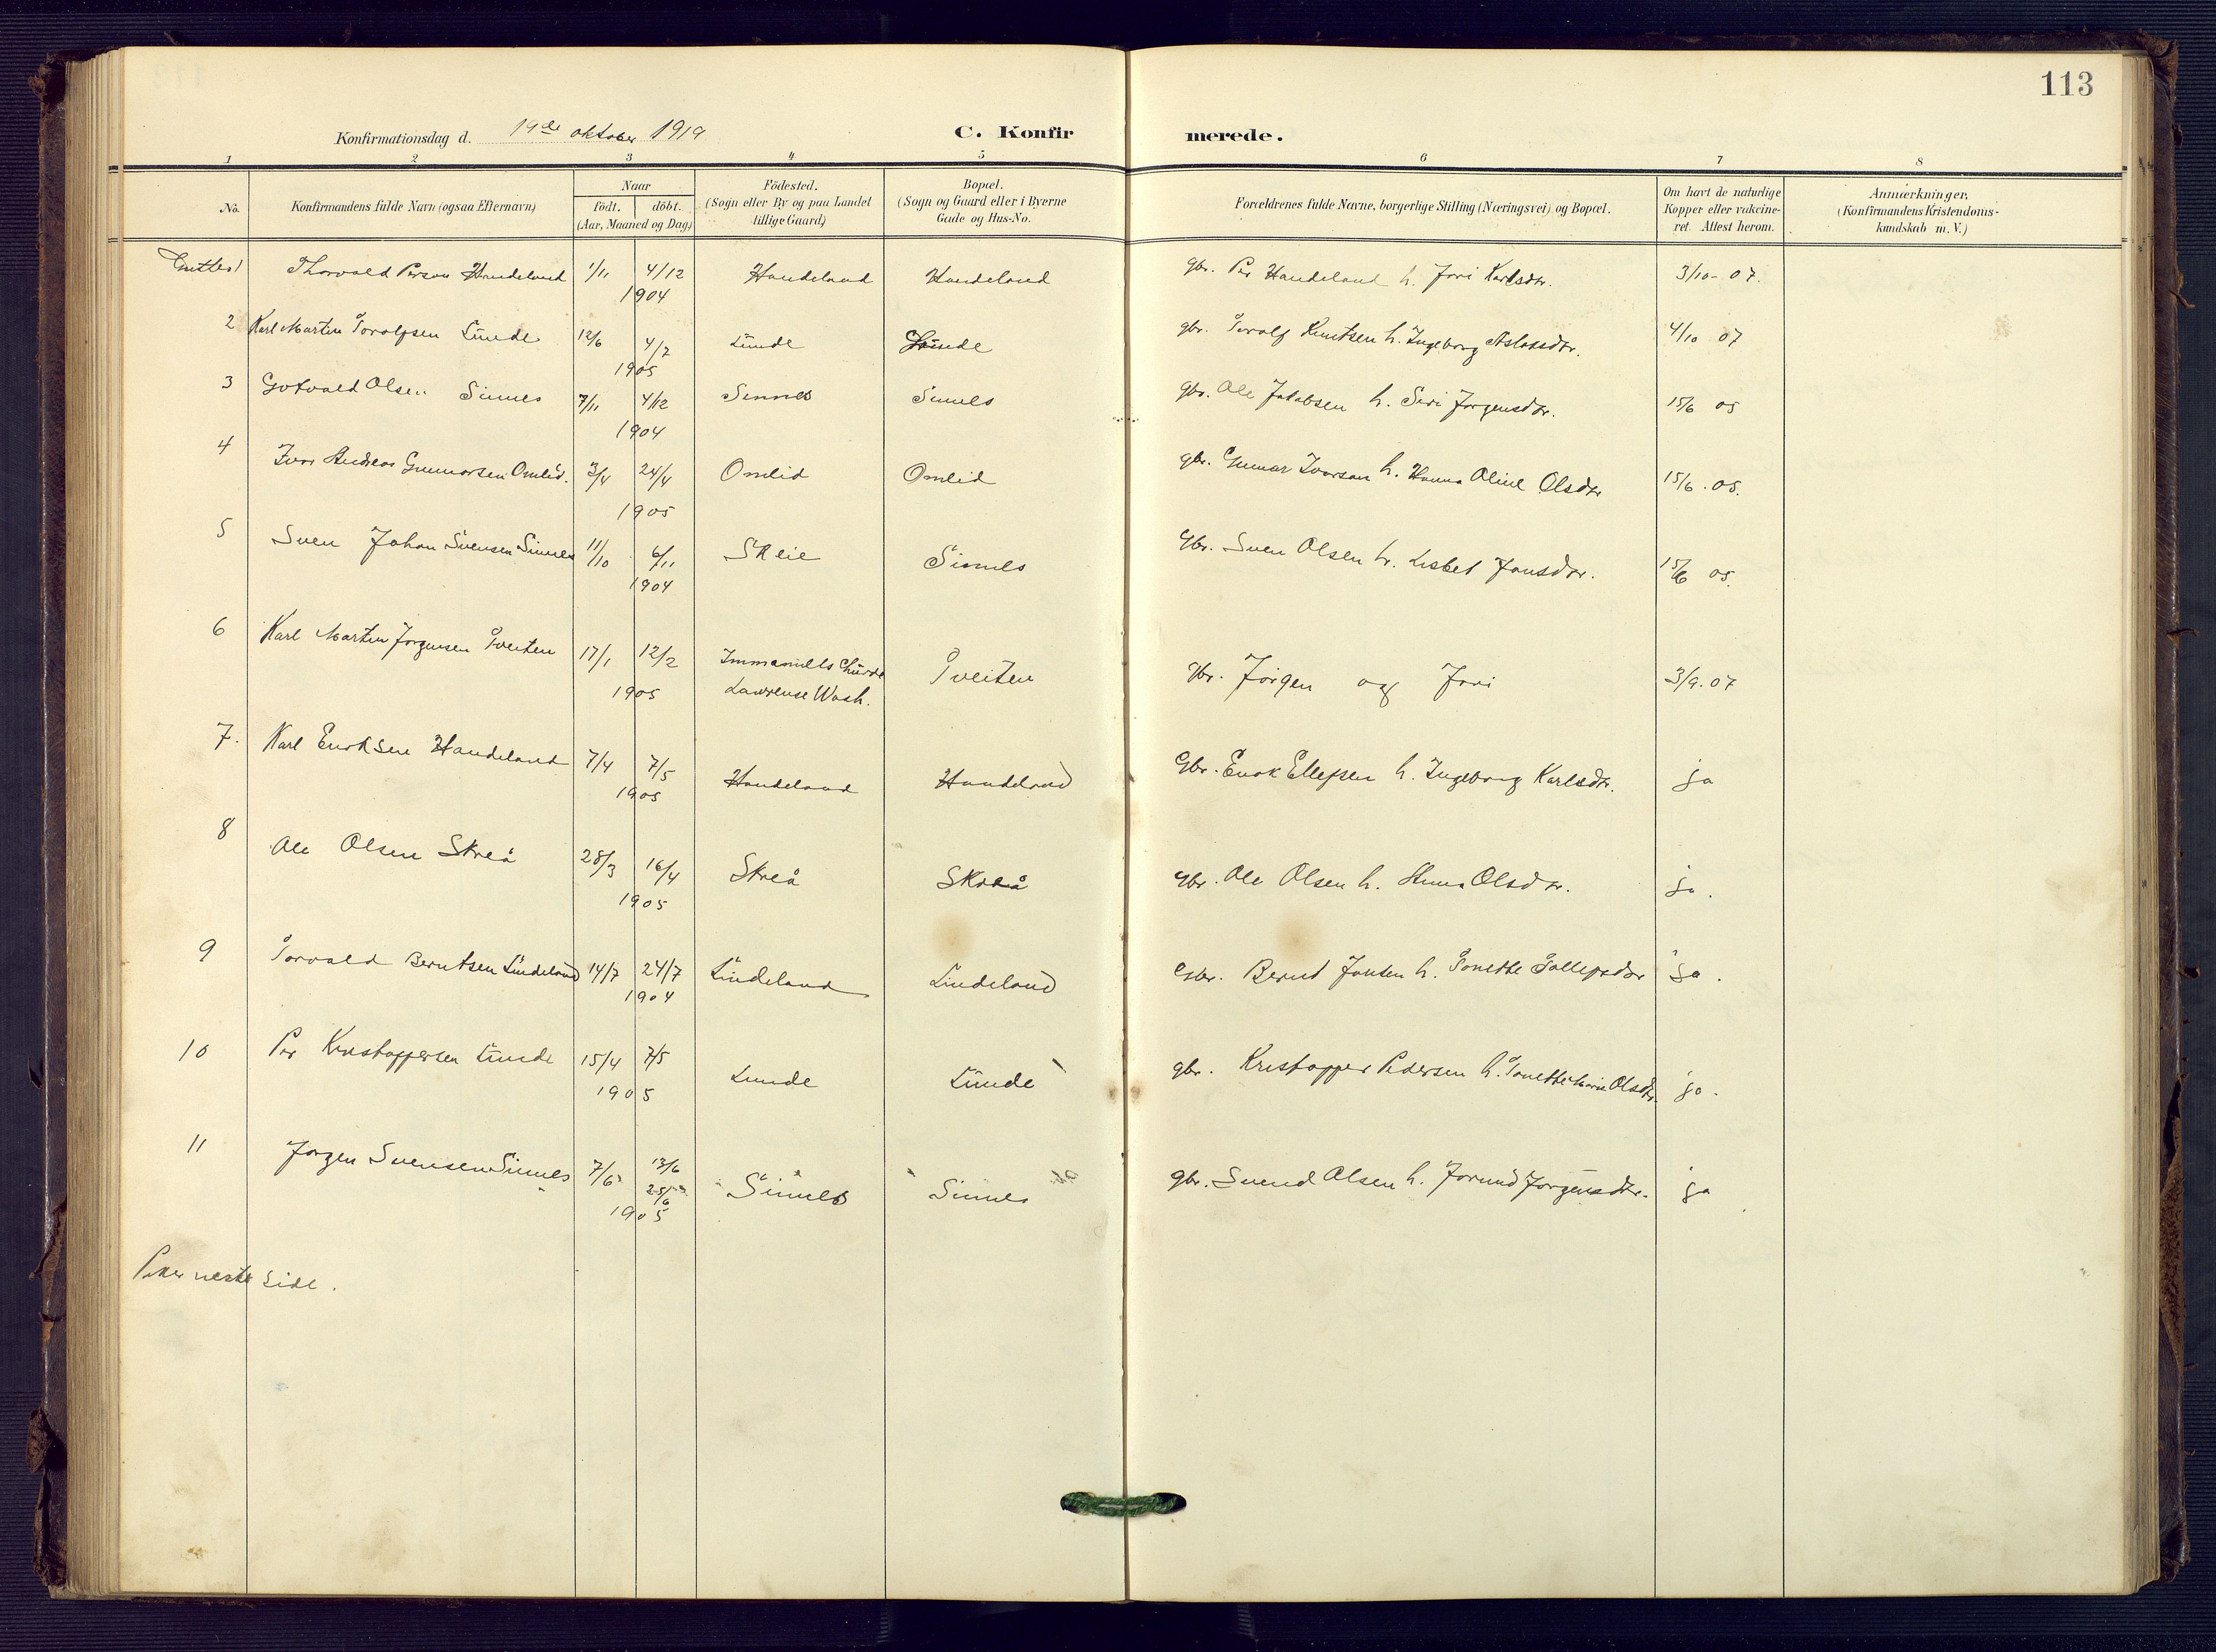 113
Konfirmationsdag d. 19de oktober 1919
C. Konfirmerede.
1 2 3 4 5 6 7 8
No.
Konfirmandens fulde Navn (ogsaa Efternavn)
Naar
Födt. döbt.
(Aar, Maaned og Dag)
Födested.
(Sogn eller By og paa Landet
tillige Gaard)
Bopæl.
(Sogn og Gaard eller i Byerne
Gade og Hus-No.
Forældrenes fulde Navne, borgerlige Stilling (Næringsvei) og Bopæl.
Om havt de naturlige
Kopper eller vakcine-
ret. Attest herom.
Anmærkninger,
(Konfirmandens Kristendoms-
kundskab m. V.)
Gutter 1 Thorvald Person Handeland 1/11 4/12 Handeland Handeland gbr. Per Handeland h. Jori Karlsdtr. 3/10- 07.
1904
2 Karl Martin Torolfsen Lunde 12/6 4/7 Lunde Lunde gbr. Torolf Knutsen h. Ingeborg Aslaksdtr. 4/10 07
1905
3 Gotvald Olsen Sinnes 7/11 4/12 Sinnes Sinnes gbr. Ole Jakobsen h. Siri Jørgensdtr. 15/6 05
1904
4 Ivar Andreas Gunnarsen Omlid. 3/4 24/4 Omlid Omlid gbr. Gunnar Ivarson h. Hanna Oline Olsdtr 15/6. 05.
1905
5 Sven Johan Svensen Sinnes 11/10 6/11 Skeie Sinnes Gbr. Sven Olsen h. Lisbet Jonsdtr. 15/6 05.
1904
6 Karl Martin Jørgensen Tveiten 17/1 12/2 Immanuels Tveiten Gbr. Jørgen og Jori 3/9. 07
1905 Lawrense Wash.
7. Karl Enoksen Handeland 7/4 7/5 Handeland Handeland Gbr. Enok Ellefsen h. Ingeborg Karlsdtr. ja
1905
8 Ole Olsen Skreå 28/3 16/4 Skreå Skreå gbr. Ole Olsen h. Olsdtr. ja.
1905
9 Torvald Berntsen Lindeland 14/7 24/7 Lindeland Lindeland Gbr. Bernt Jonsen h. Tonette Tollefsdtr ja.
1904
10 Per Kristoffersen Lunde 15/4 7/5 Lunde Lunde gbr. Kristoffer Pedersen h. Tonette Marie Olsdtr. ja.
1905
11 Jørgen Svensen Sinnes 7/6 13/6 Sinnes Sinnes gbr. Svend Olsen h. Jorund Jørgensdtr. ja
25/6
1905
neste side.